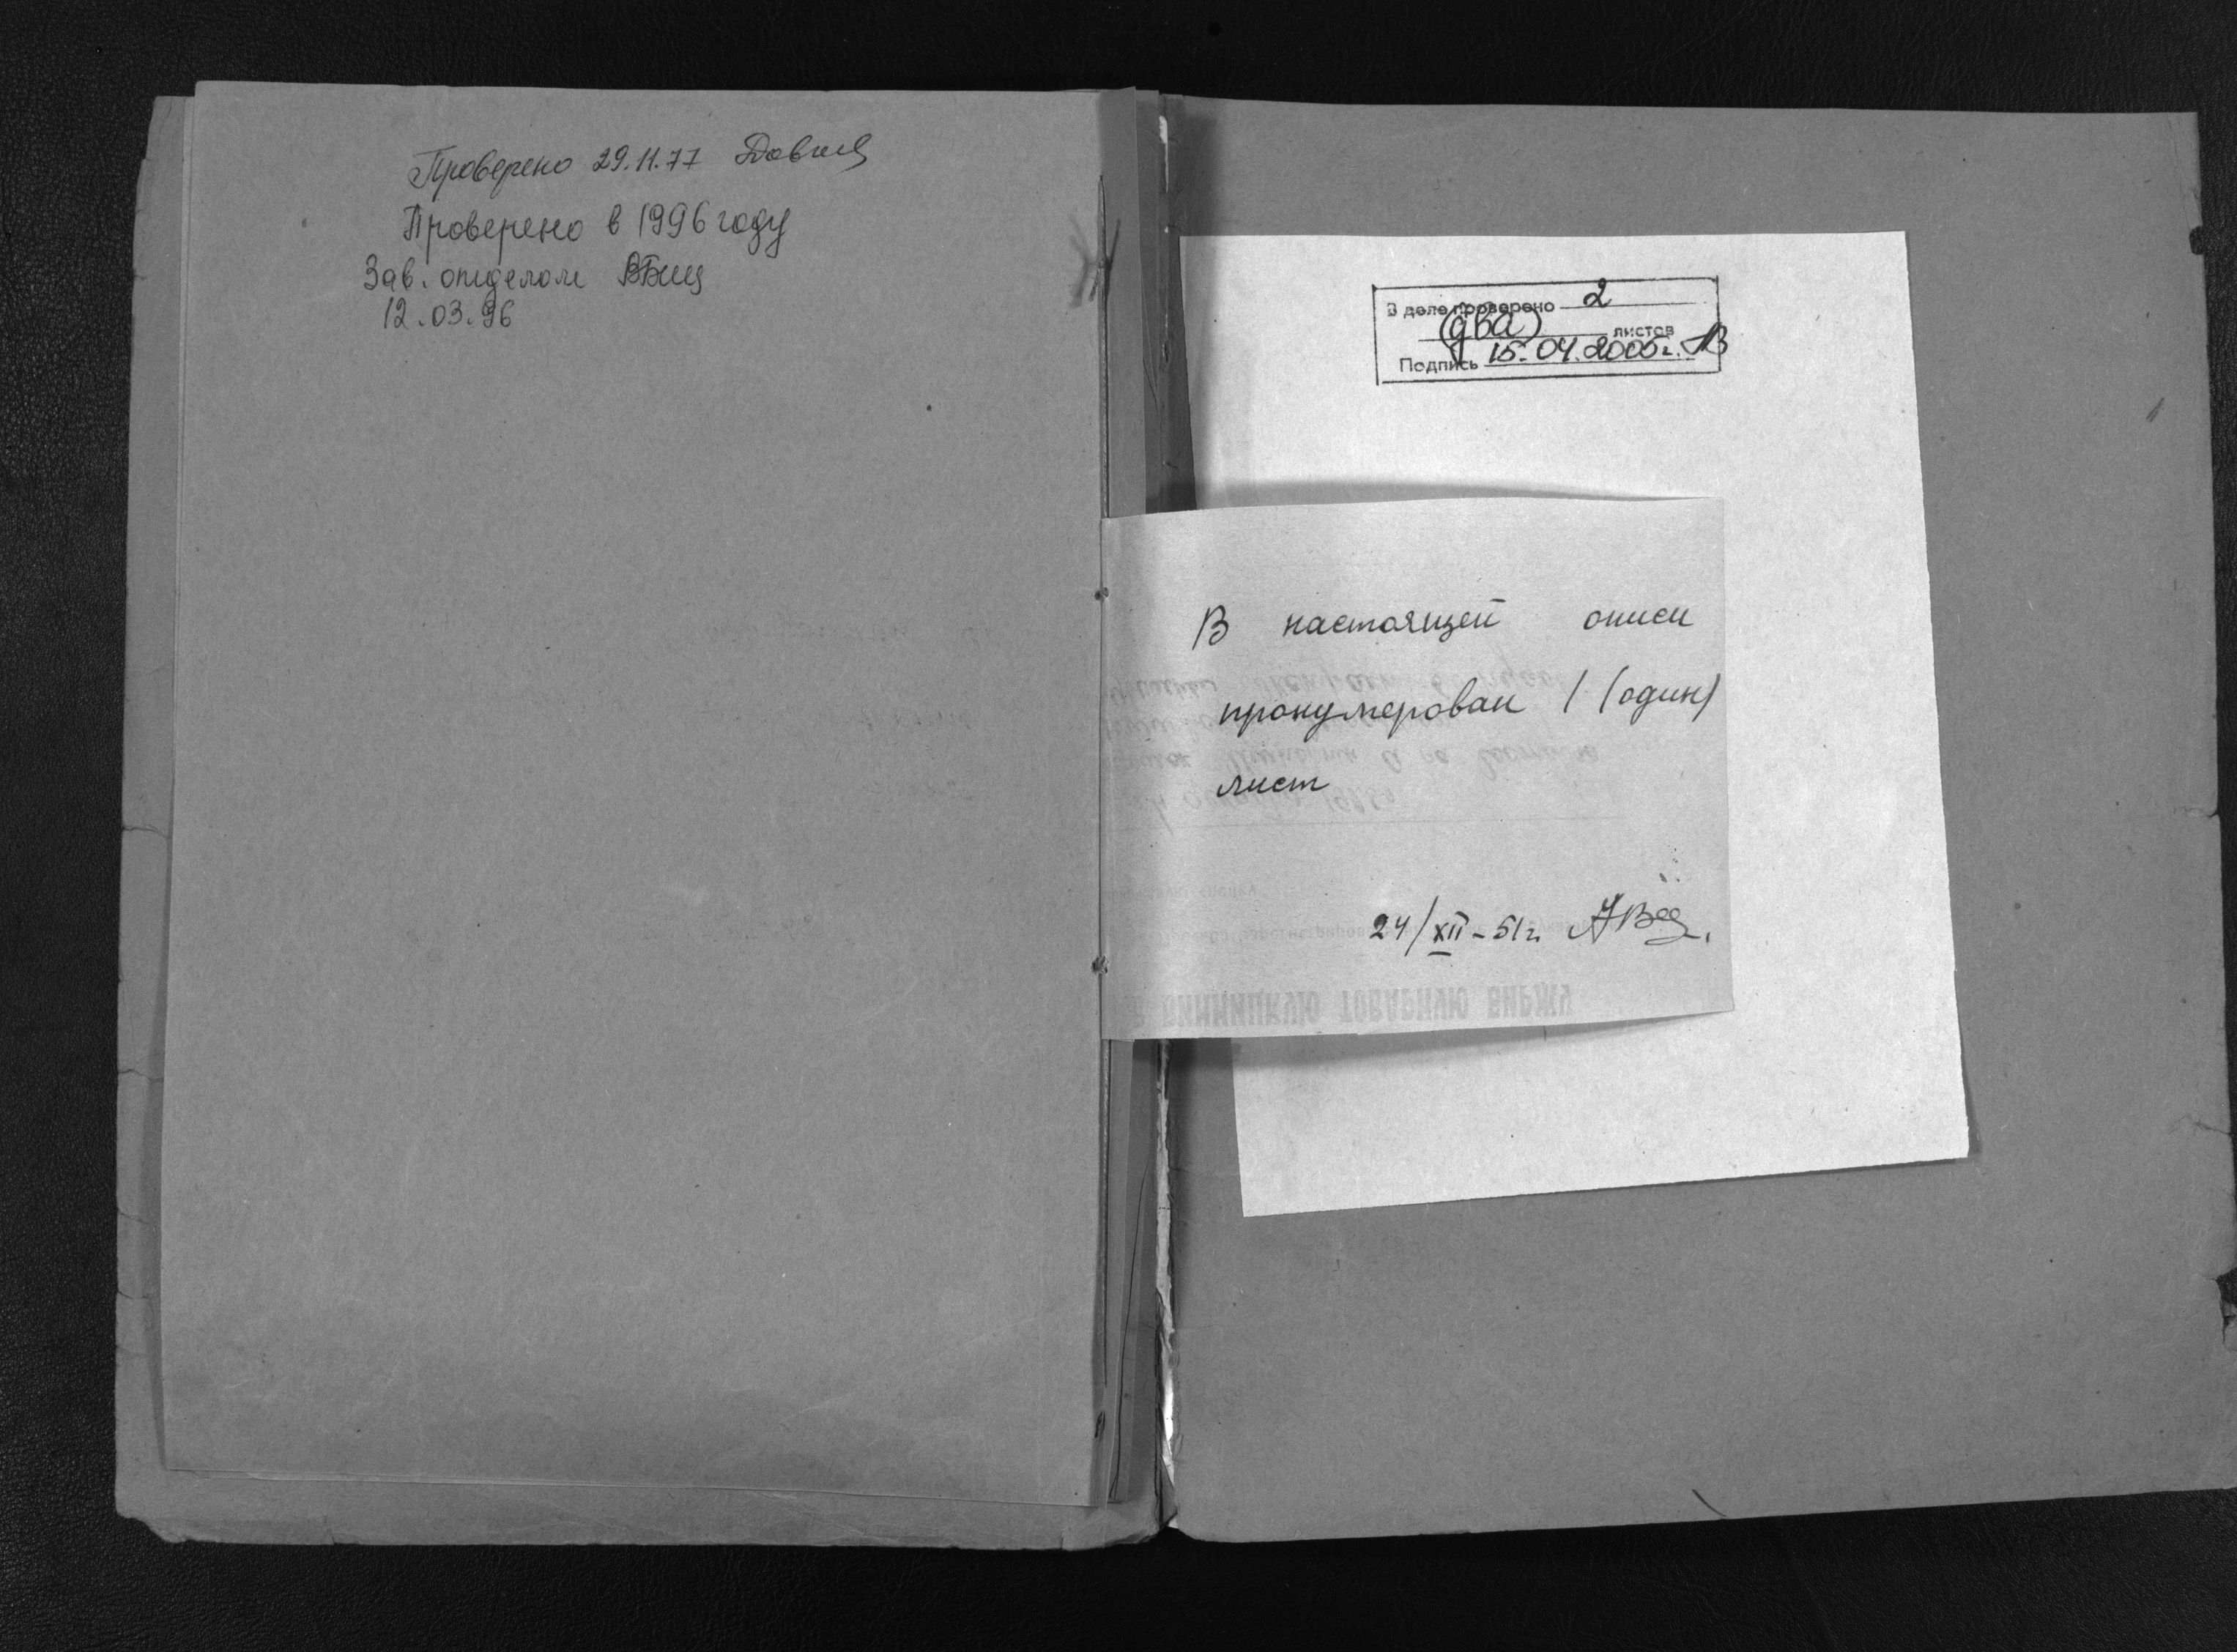 Проверено 29.11.77
Проверено в 1996 году
Зав. отделом
12.03.96
В деле проверено 2
(два) листов
Подпись 15.04.2005г.
В настоящей описи
пронумерован 1 (один)
лист
24/XII-51г.
ВИННИЦКУЮ ТОВАРНУЮ БИРЖУ